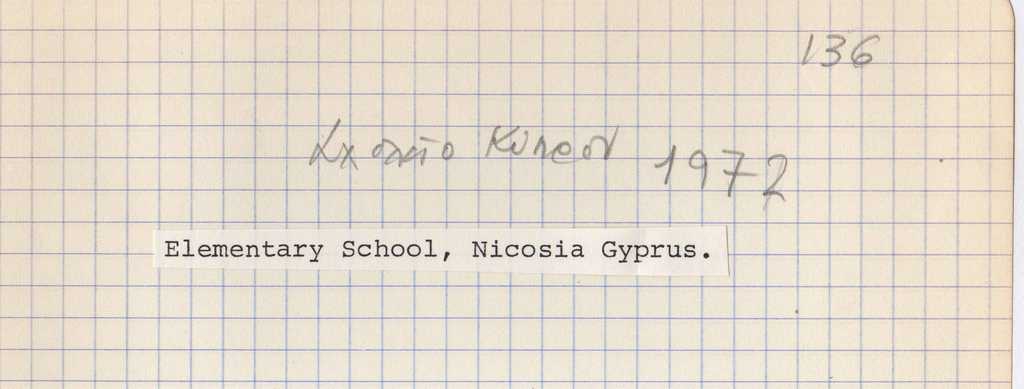 136
Σχολείο Κύπρου 1972
Elementary School, Nicosia Gyprus.